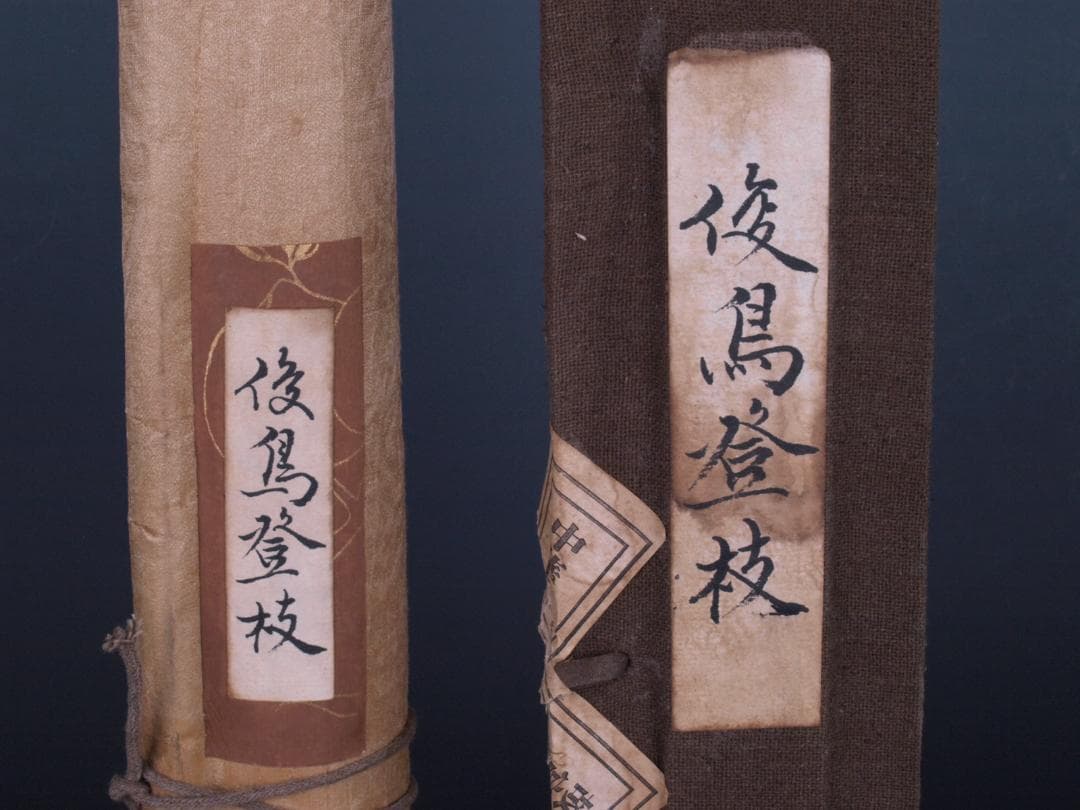 俊鳥登枝
俊鳥登枝
中